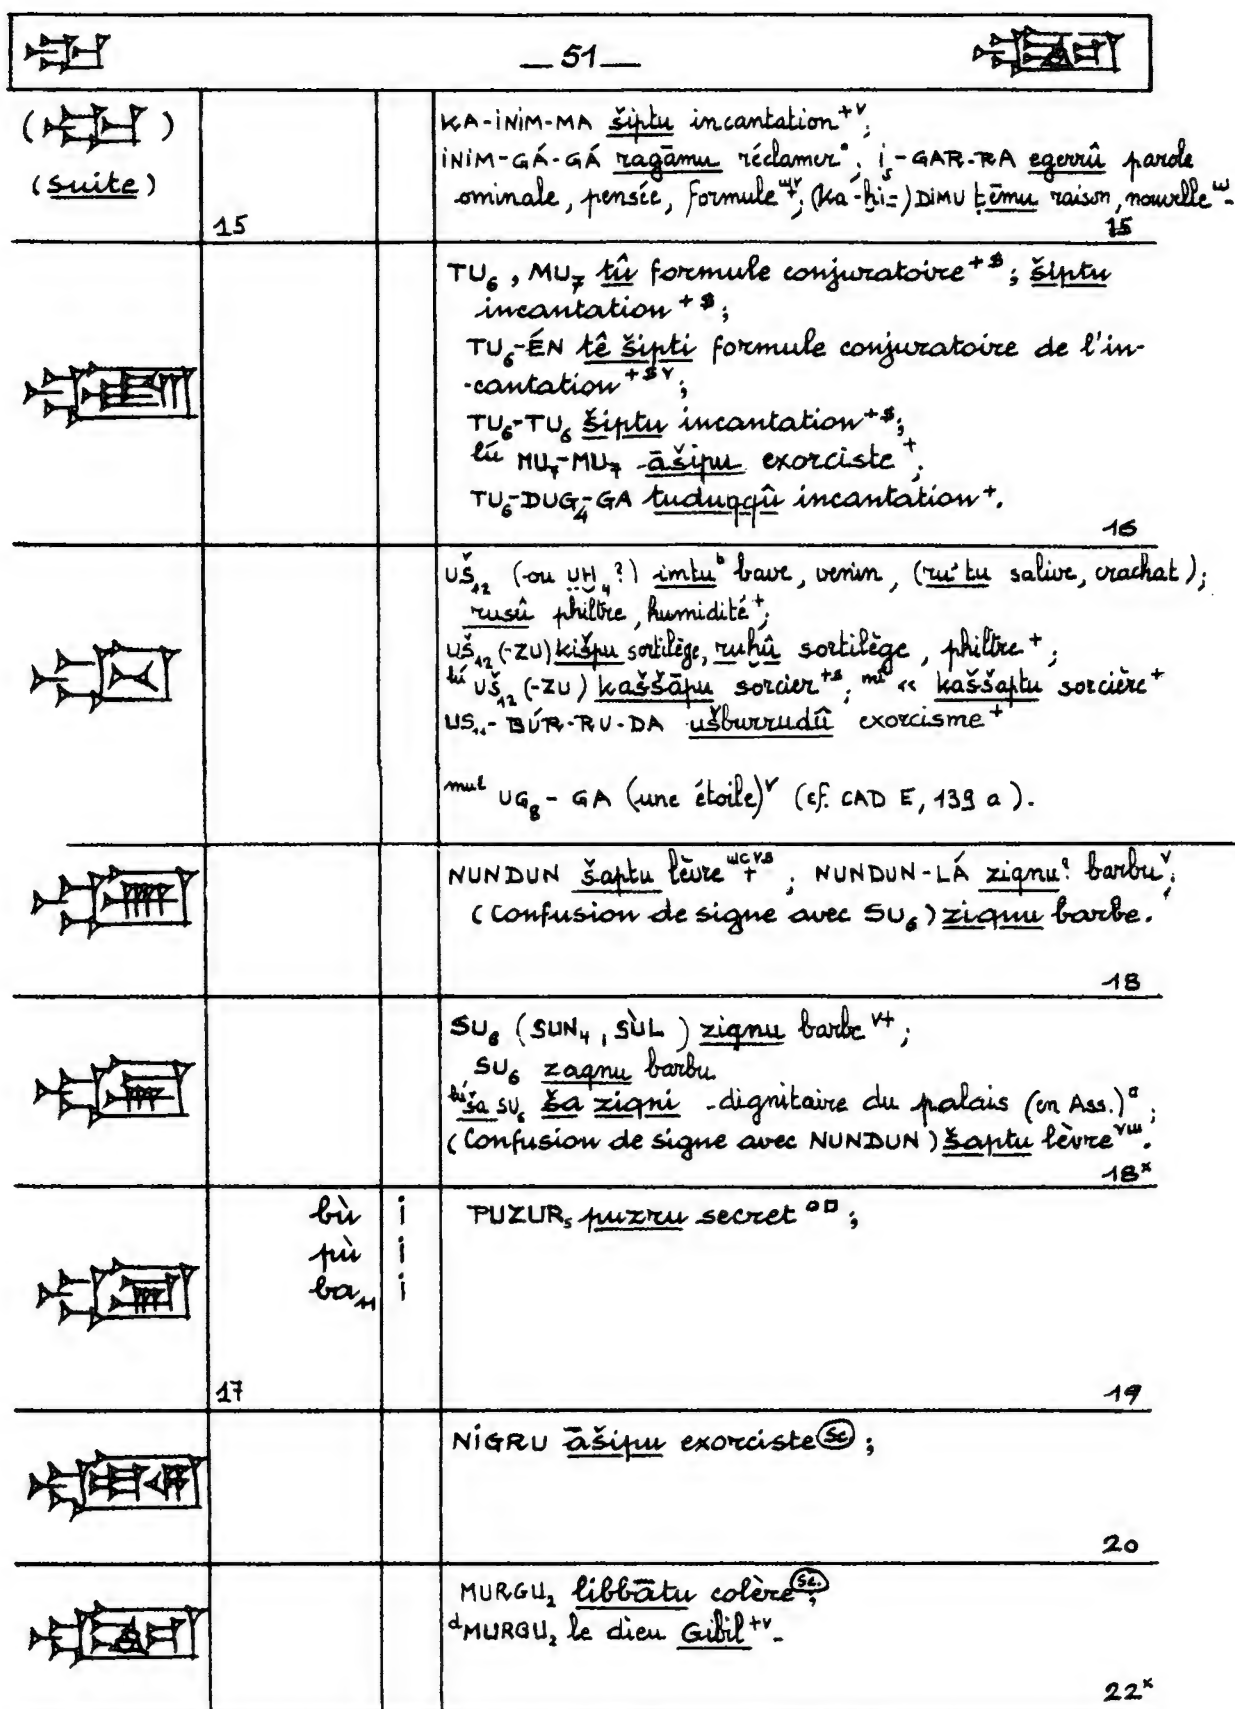 — 51 —
KA-INIM-MA šiptu incantation⁺ᵛ;
(suite)
INIM-GÁ-GÁ ragāmu réclamer°; i₅-GAR-RA egerrû parole
ominale, pensée, formule; (ka-ḫi-)DIMU ṭēmu raison, nouvelle
15
15
TU₆, MU₇ tû formule conjuratoire⁺ˢ; šiptu
incantation⁺ˢ;
TU₆-ÉN tê šipti formule conjuratoire de l'in-
-cantation⁺ˢᵛ;
TU₆-TU₆ šiptu incantation⁺ˢ;
lú MU₇-MU₇ āšipu exorciste⁺;
TU₆-DUG₄-GA tuduqqû incantation⁺.
16
UŠ₁₂ (ou UḪ₄?) imtuᵇ bave, venin, (ru'tu salive, crachat);
rusû philtre, humidité⁺;
UŠ₁₂(-ZU) kišpu sortilège, ruḫû sortilège, philtre⁺;
lú UŠ₁₂(-ZU) kaššāpu sorcier⁺ˢ; mí « kaššaptu sorcière⁺
UŠ₁₁-BÚR-RU-DA ušburrudû exorcisme⁺
mul UG₈-GA (une étoile)ᵛ (cf. CAD E, 139 a).
NUNDUN šaptu lèvre; NUNDUN-LÁ ziqnu? barbuᵛ;
(Confusion de signe avec SU₆) ziqnu barbe.
18
SU₆ (SUN₄, SÙL) ziqnu barbeᵛ⁺;
SU₆ zaqnu barbu
lú ša SU₆ ša ziqni dignitaire du palais (en Ass.)°;
(Confusion de signe avec NUNDUN) šaptu lèvre.
18ˣ
bù i PUZUR₅ puzru secret°□;
pù i
ba₁₁ i
17
19
NIGRU āšipu exorciste Sc.;
20
MURGU₂ libbātu colère Sc.;
ᵈMURGU₂ le dieu Gibil⁺ᵛ.
22ˣ